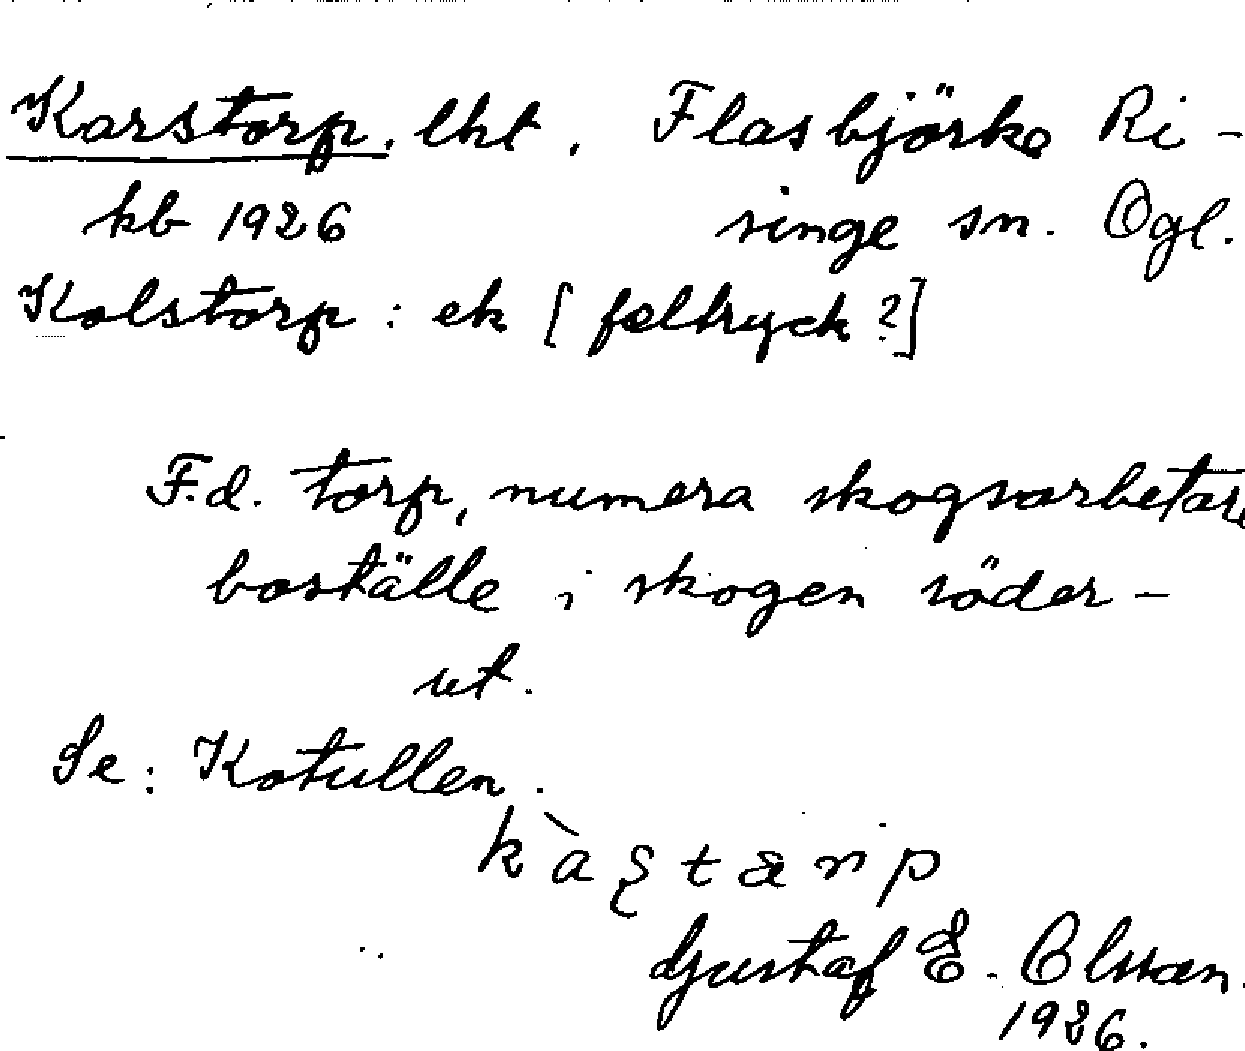 Karstorp. lht. Flasbjörke Ri-
kb 1926 singe sn. Ögl.
Kolstorp : ek [feltryck?]
F.d. torp, numera skogsarbetare
boställe i skogen söder-
ut.
Se : Kotullen.
Gustaf E. Olsson.
1926.